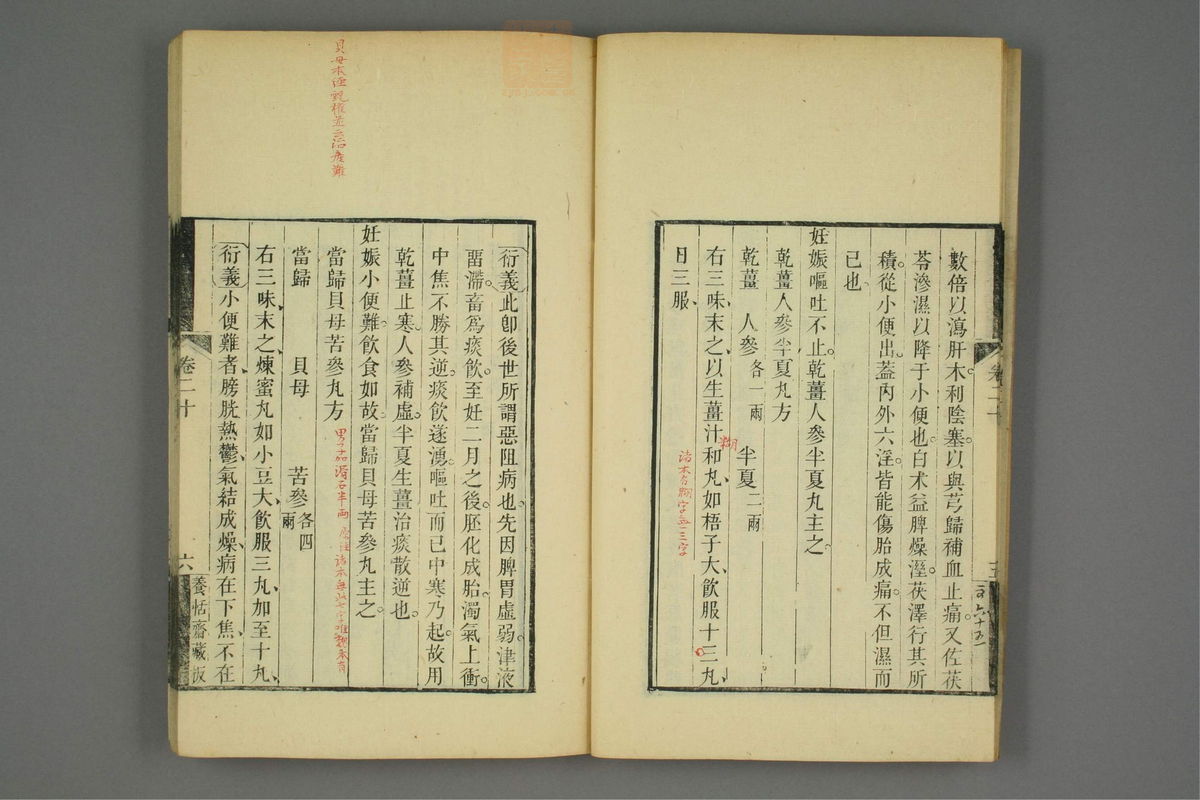 數倍以瀉肝木利陰塞以與芎歸補血止痛又佐茯
苓滲濕以降于小便也白术益脾燥溼茯澤行其所
積從小便出蓋內外六淫皆能傷胎成痛不但濕而
已也
妊娠嘔吐不止乾薑人參半夏丸主之
乾薑人參半夏丸方
乾薑 人參各一兩 半夏二兩
右三味末之以生薑汁和丸如梧子大飲服十三丸
糊
日三服
諸本有糊字無三字
衍義此卽後世所謂惡阻病也先因脾胃虛弱津液
畱滯蓄爲痰飲至妊二月之後胚化成胎濁氣上衝
中焦不勝其逆痰飲遂湧嘔吐而已中寒乃起故用
乾薑止寒人參補虛半夏生薑治痰散逆也
妊娠小便難飲食如故當歸貝母苦參丸主之
當歸貝母苦參丸方
男子加滑石半兩
諸本無此七字
當歸 貝母 苦參各四兩
右三味末之煉蜜丸如小豆大飲服三丸加至十丸
衍義小便難者膀胱熱鬱氣結成燥病在下焦不在
卷二十
六
養恬齋藏板